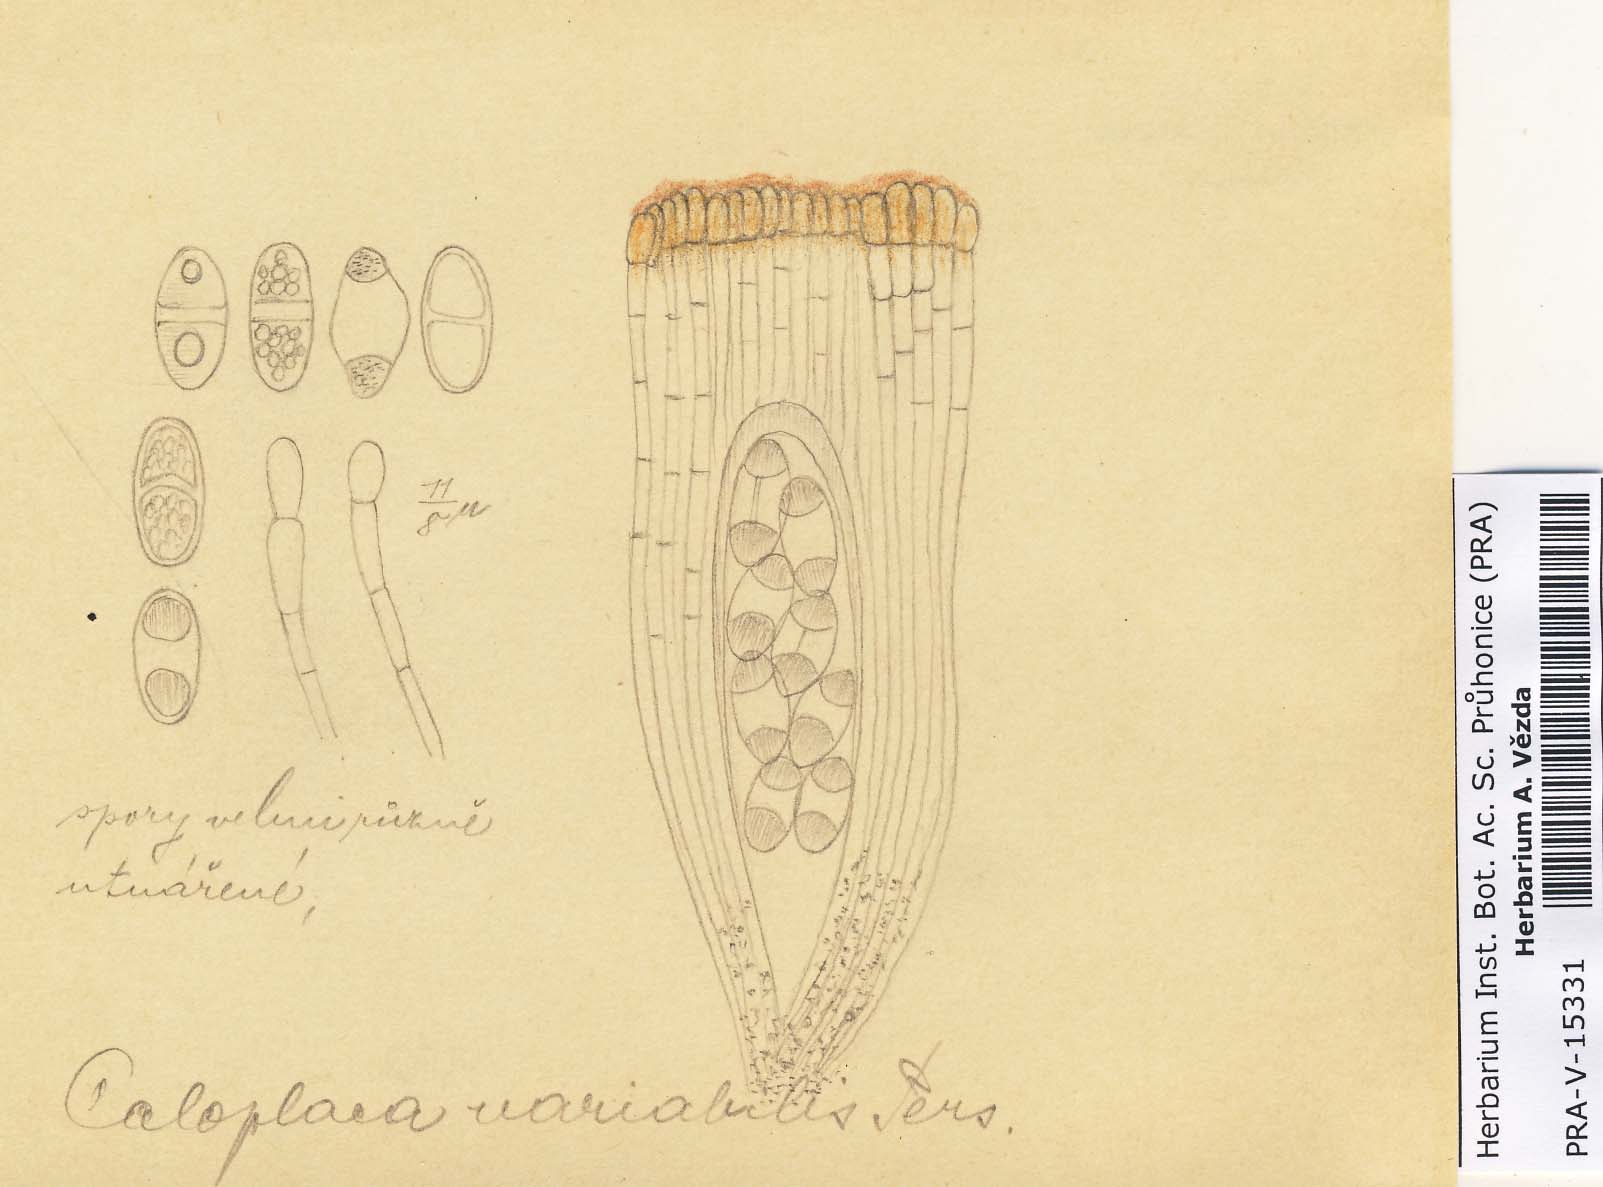 11/8 µ
spory velmi různě
utvářené,
Caloplaca variabilis Pers.
Herbarium Inst. Bot. Ac. Sc. Průhonice (PRA)
Herbarium A. Vězda
PRA-V-15331